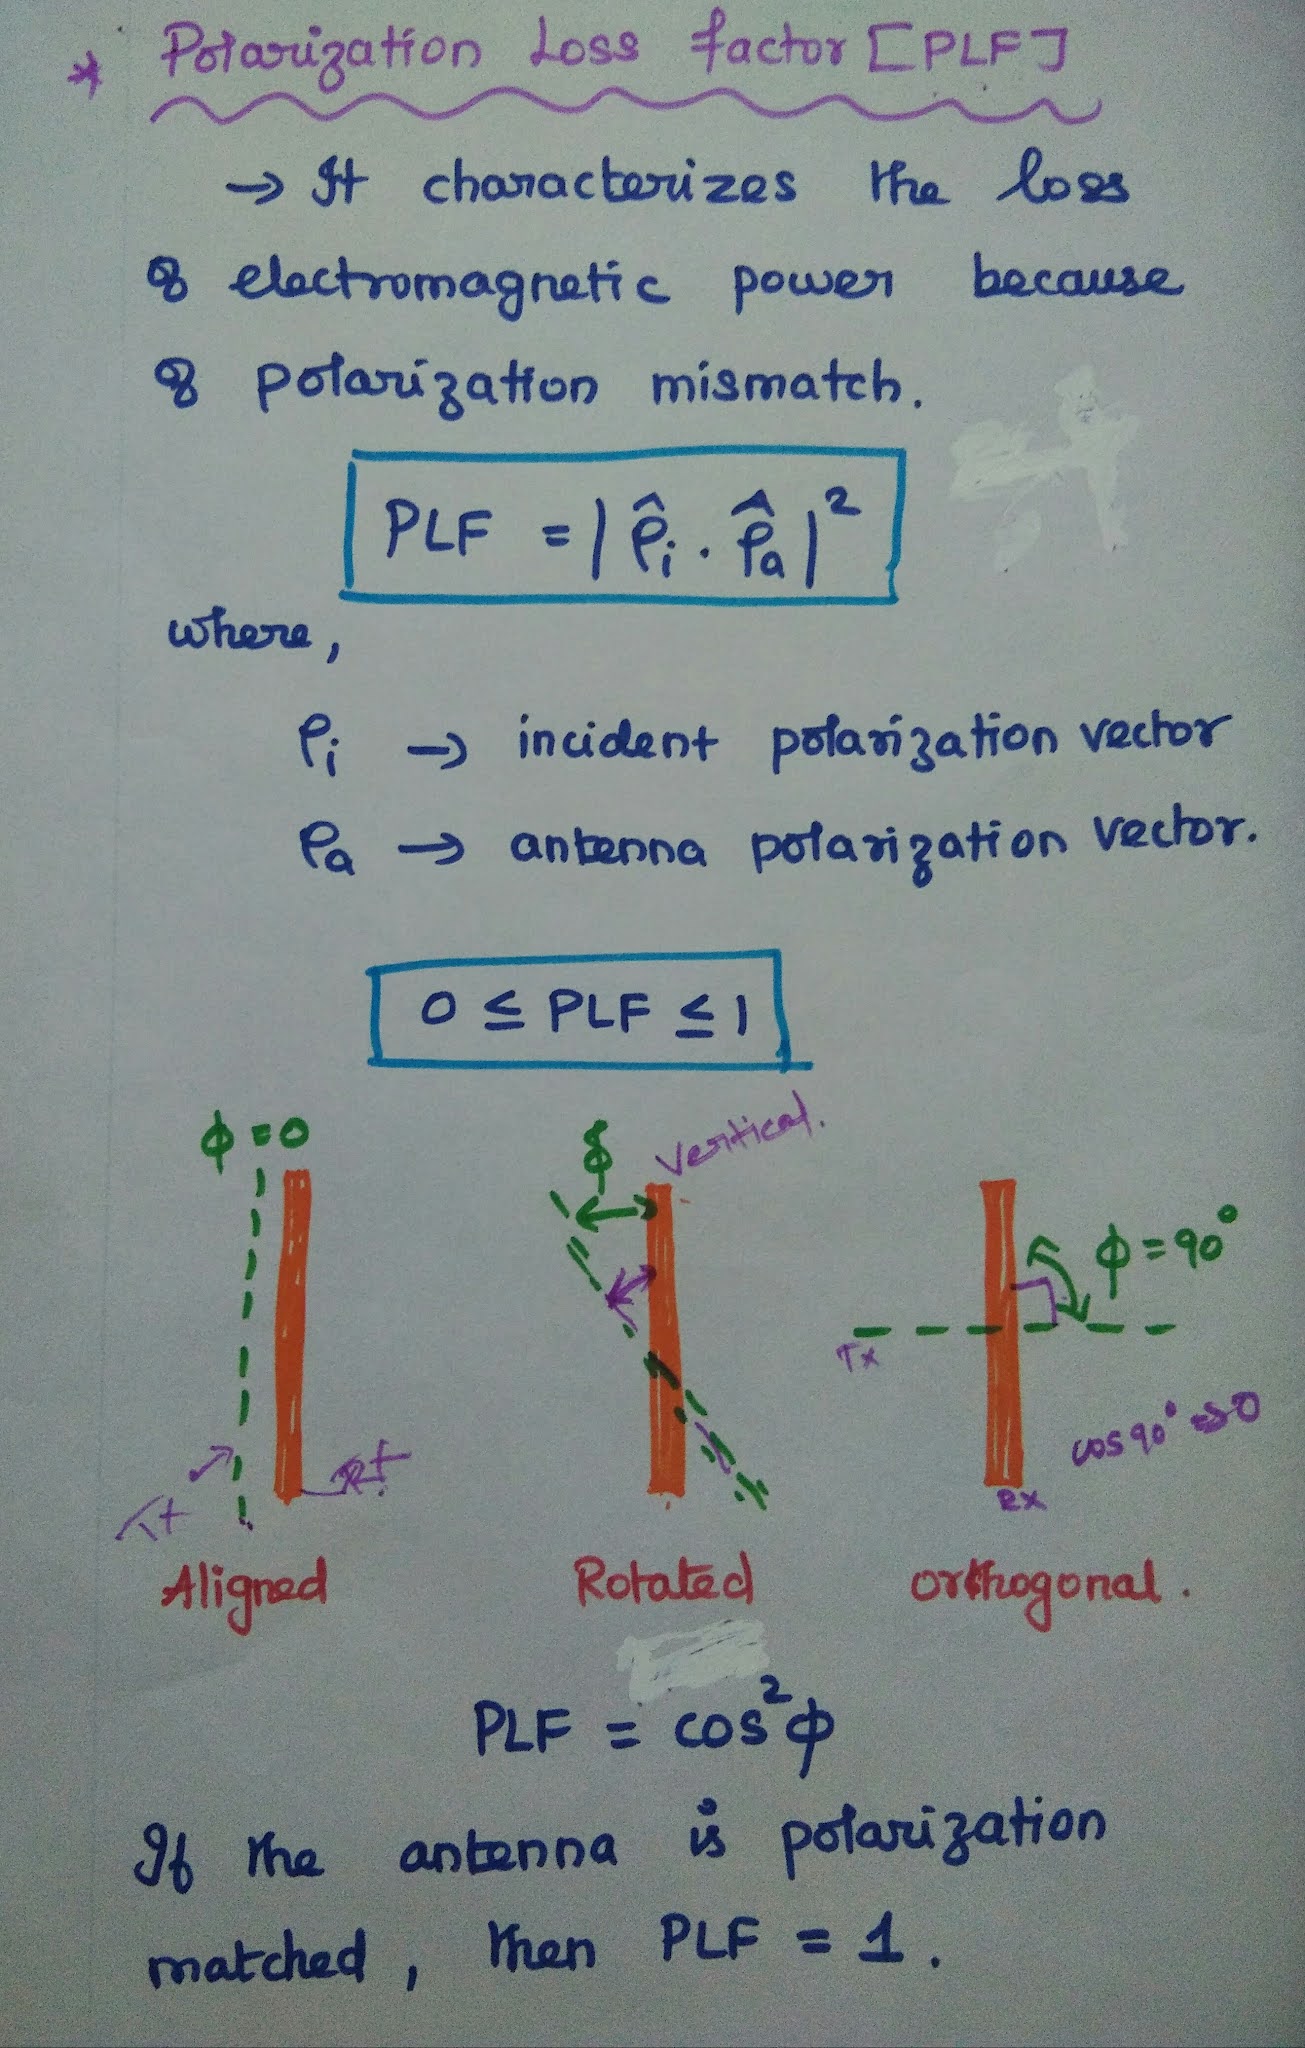 * Polarization Loss factor [PLF]
→ It characterizes the loss
of electromagnetic power because
of polarization mismatch.
PLF = | ρ̂i . ρ̂a |²
where,
ρi → incident polarization vector
ρa → antenna polarization vector.
0 ≤ PLF ≤ 1
ϕ = 0
ϕ
Vertical.
ϕ = 90°
Tx
cos 90° ⇒ 0
Rx
Aligned
Rotated
orthogonal.
PLF = cos²ϕ
If the antenna is polarization
matched, then PLF = 1.